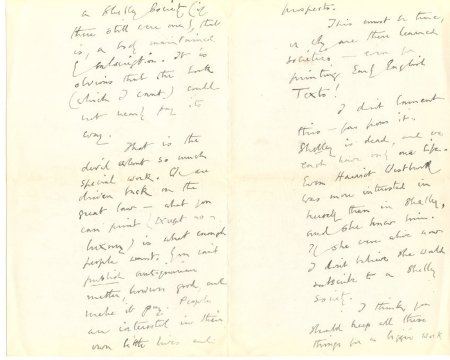 a Shelley Society (if
there still were one), that
is, a body maintained
by subscription. It is
obvious that the book
(which I want) could
not nearly pay its
way.
That is the
devil about so much
special work. We are
driven back on the
great law — what you
can print (except as a
luxury) is what enough
people want. You can't
publish
matter, however good, and
make it pay. People
are interested in their
own little lives and
prospects.
This must be true,
or why are there learned
societies — even for
printing Early English
Texts!
I don't lament
this — far from it.
Shelley is dead, and we
each have only one life.
Even Harriet Westbrook
was more interested in
herself than in Shelley,
and she knew him.
If she were alive now
I don't believe she would
subscribe to a Shelley
Society.
I think you
should keep all these
things for a bigger work